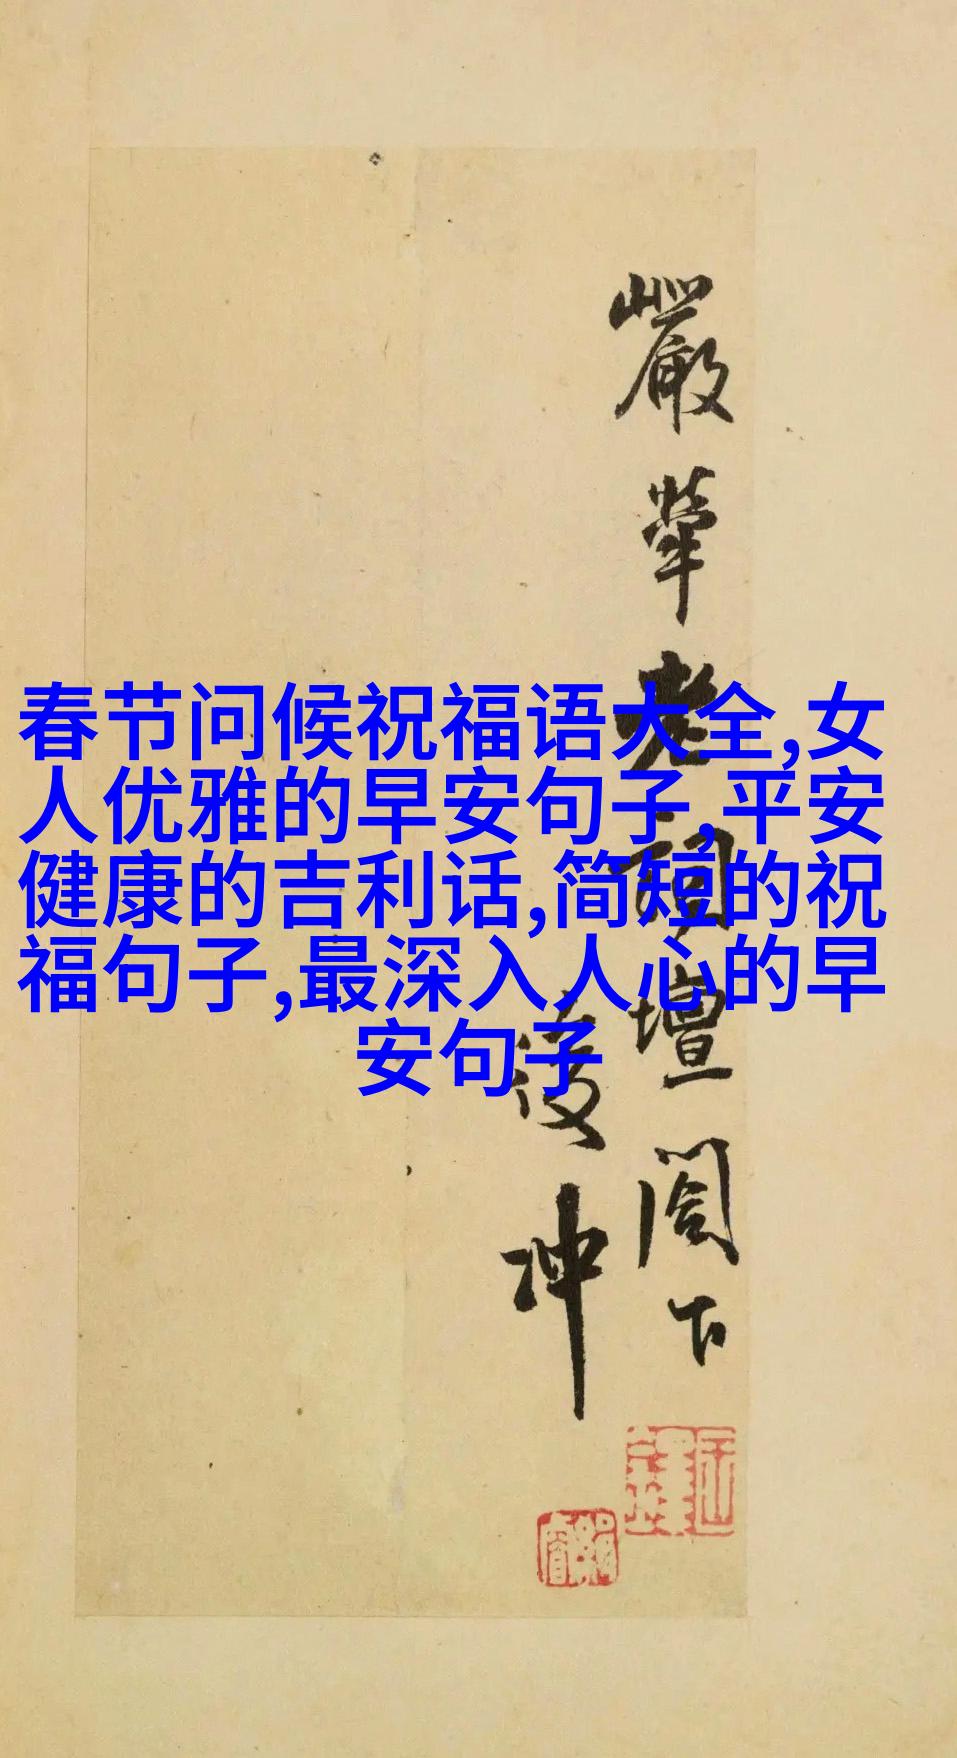 春节问候祝福语大全,女
人优雅的早安句子,平安
健康的吉利话,简短的祝
福句子,最深入人心的早
安句子
嚴犖老詞壇閣下
後冲